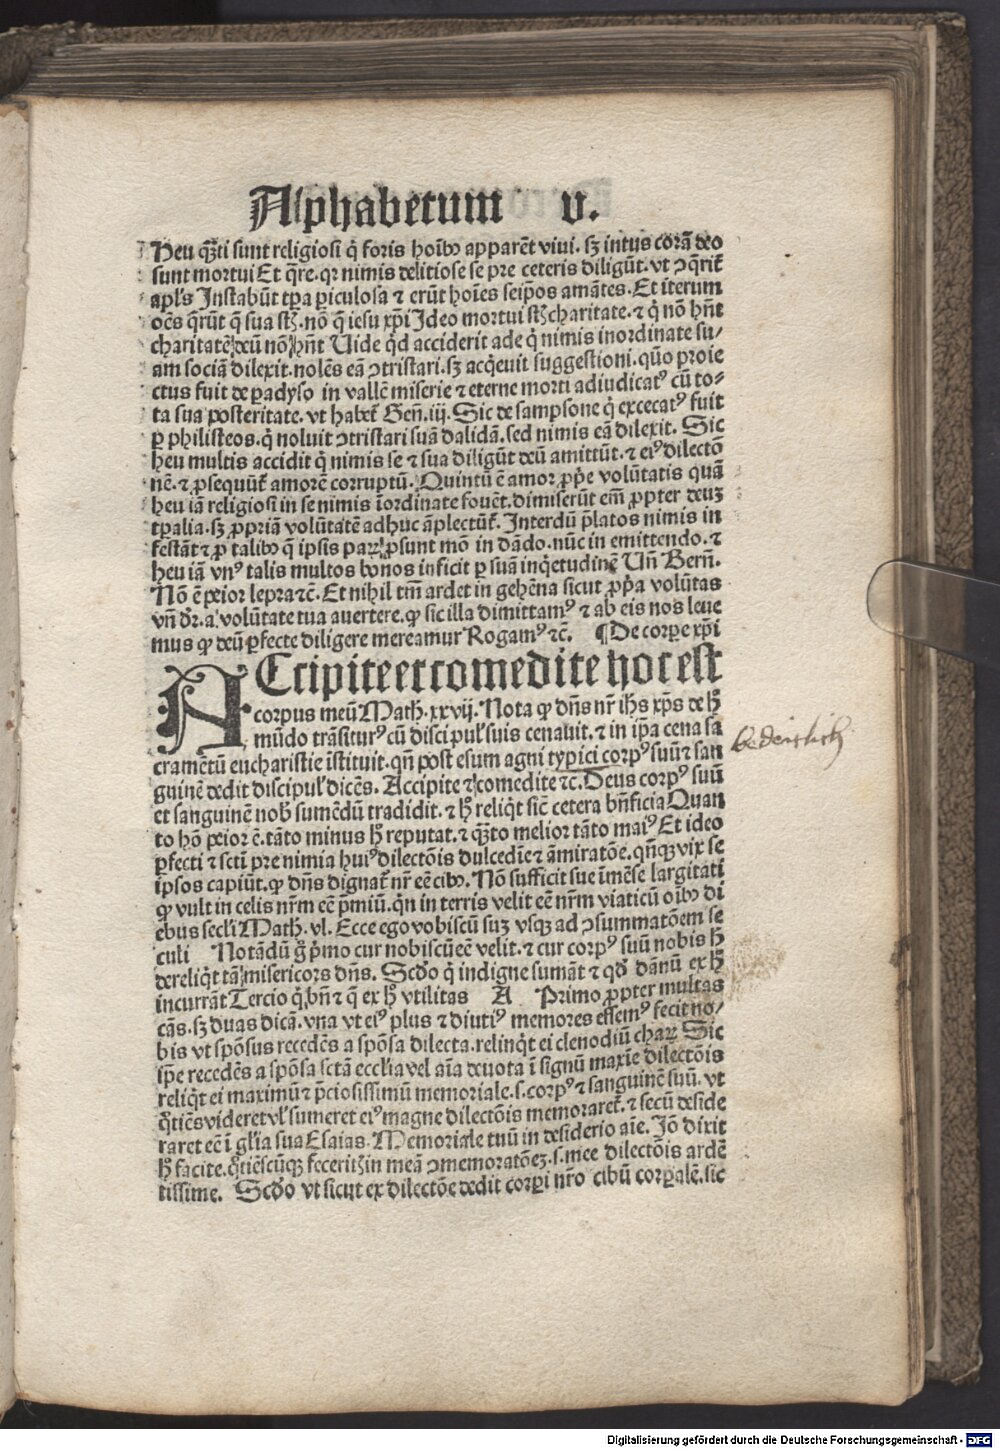 Alphabetum v.
Heu q̄ȝti sunt religiosi q̇ foris hoībꝰ apparēt viui. sȝ intus corā deo
sunt mortui Et q̄re. qꝛ nimis delitiose se pre ceteris diligūt. vt ꝯq̄rit̄
apl's Instabūt tꝑa ꝑiculosa ⁊ erūt hoīes seip̄os amātes. Et iterum
oēs q̄rūt q̄ sua st̄. nō q̄ iesu xp̄i Ideo mortui st̄ charitate. ⁊ q̇ nō hn̄t
charitatē deū nō hn̄t Uide q̇d acciderit ade q̇ nimis inordinate su/
am sociā dilexit. nolēs eā ꝯtristari. sȝ acq̇euit suggestioni. quō proie
ctus fuit de ꝑadyso in vallē miserie ⁊ eterne morti adiudicatꝰ cū to⸗
ta sua posteritate. vt habet̄ Geñ. iij. Sic de sampsone q̇ excecatꝰ fuit
ꝑ philisteos. q̇ noluit ꝯtristari suā dalidā. sed nimis eā dilexit. Sic
heu multis accidit q̇ nimis se ⁊ sua diligūt deū amittūt. ⁊ eiꝰ dilectō
nē. ⁊ ꝓsequūt̄ amorē corruptū. Quintū ē amor ꝓp̄e volūtatis quā
heu iā religiosi in se nimis īordinate fouēt. dimiserūt em̄ ꝓpter deuȝ
tꝑalia. sȝ ꝓpriā volūtatē adhuc āplectūt̄. Interdū p̄latos nimis in
festāt ⁊ ꝓ talibꝰ q̄ ipsis paꝝ ꝓsunt mō in dādo. nūc in emittendo. ⁊
heu iā vnꝰ talis multos bonos inficit ꝑ suā inq̇etudinē Uñ Berñ.
Nō ē peior lepra ⁊c̄. Et nihil tm̄ ardet in gehēna sicut ꝓp̄a volūtas
vñ dr̄. a volūtate tua auertere. ꝙ sic illa dimittamꝰ ⁊ ab eis nos leue
mus ꝙ deū ꝑfecte diligere mereamur Rogamꝰ ⁊c̄. ¶ De corꝑe xp̄i
ACcipite et comedite hoc est
corpus meū Math. xxvij. Nota ꝙ dn̄s nr̄ ih̄s xp̄s de h̄
mūdo trāsiturꝰ cū discipul' suis cenauit. ⁊ in ip̄a cena sa
bederslich
cramētū eucharistie īstituit. qn̄ post esum agni typici corpꝰ suū ⁊ san
guinē dedit discipul' dicēs. Accipite ⁊ comedite ⁊c̄. Deus corpꝰ suū
et sanguinē nob' sumēdū tradidit. ⁊ h̄ reliq̇t sic̄ cetera bn̄ficia Quan
to hō peior ē. tāto minus h̄ reputat. ⁊ q̄ȝto melior tāto maiꝰ Et ideo
ꝑfecti ⁊ sctī pre nimia huiꝰ dilectōis dulcedīe ⁊ āmiratōe. qn̄qꝫ vix se
ipsos capiūt. ꝙ dn̄s dignat̄ nr̄ eē cibꝰ. Nō sufficit sue īmēse largitati
ꝙ vult in celis nr̄m eē p̄miū. q̇n in terris velit eē nr̄m viaticū oībꝰ di
ebus secl'i Math. vl. Ecce ego vobiscū suȝ vsqꝫ ad ꝯsummatōem se
culi Notādū g̊ ṗmo cur nobiscū eē velit. ⁊ cur corpꝰ suū nobis h̄
dereliq̇t tā misericors dn̄s. Scd̄o q̇ indigne sumāt ⁊ qd̄ dānū ex h̄
incurrāt Tercio q̇ bn̄ ⁊ q̄ ex h̄ vtilitas A Primo ꝓpter multas
cās. sȝ duas dicā. vna vt eiꝰ plus ⁊ diutiꝰ memores essemꝰ fecit no/
bis vt spōsus recedēs a spōsa dilecta. relinq̇t ei clenodiū chaꝝ Sic
ip̄e recedēs a spōsa sctā eccl'ia vel aīa deuota ī signū maxīe dilectōis
reliq̇t ei maximū ⁊ p̄ciosissimū memoriale. s. corpꝰ ⁊ sanguinē suū. vt
q̊tiēs videret vl' sumeret eiꝰ magne dilectōis memoraret̄. ⁊ secū deside
raret eē ī gl'ia sua Esaias. Memoriale tuū in desiderio aīe. Iō dixit
h̄ facite. q̊tiēscūqꝫ feceritȝ in meā ꝯmemoratōeȝ. s. mee dilectōis ardē
tissime. Scd̄o vt sicut ex dilectōe dedit corꝑi nr̄o cibū corꝑalē. sic
Digitalisierung gefördert durch die Deutsche Forschungsgemeinschaft - DFG